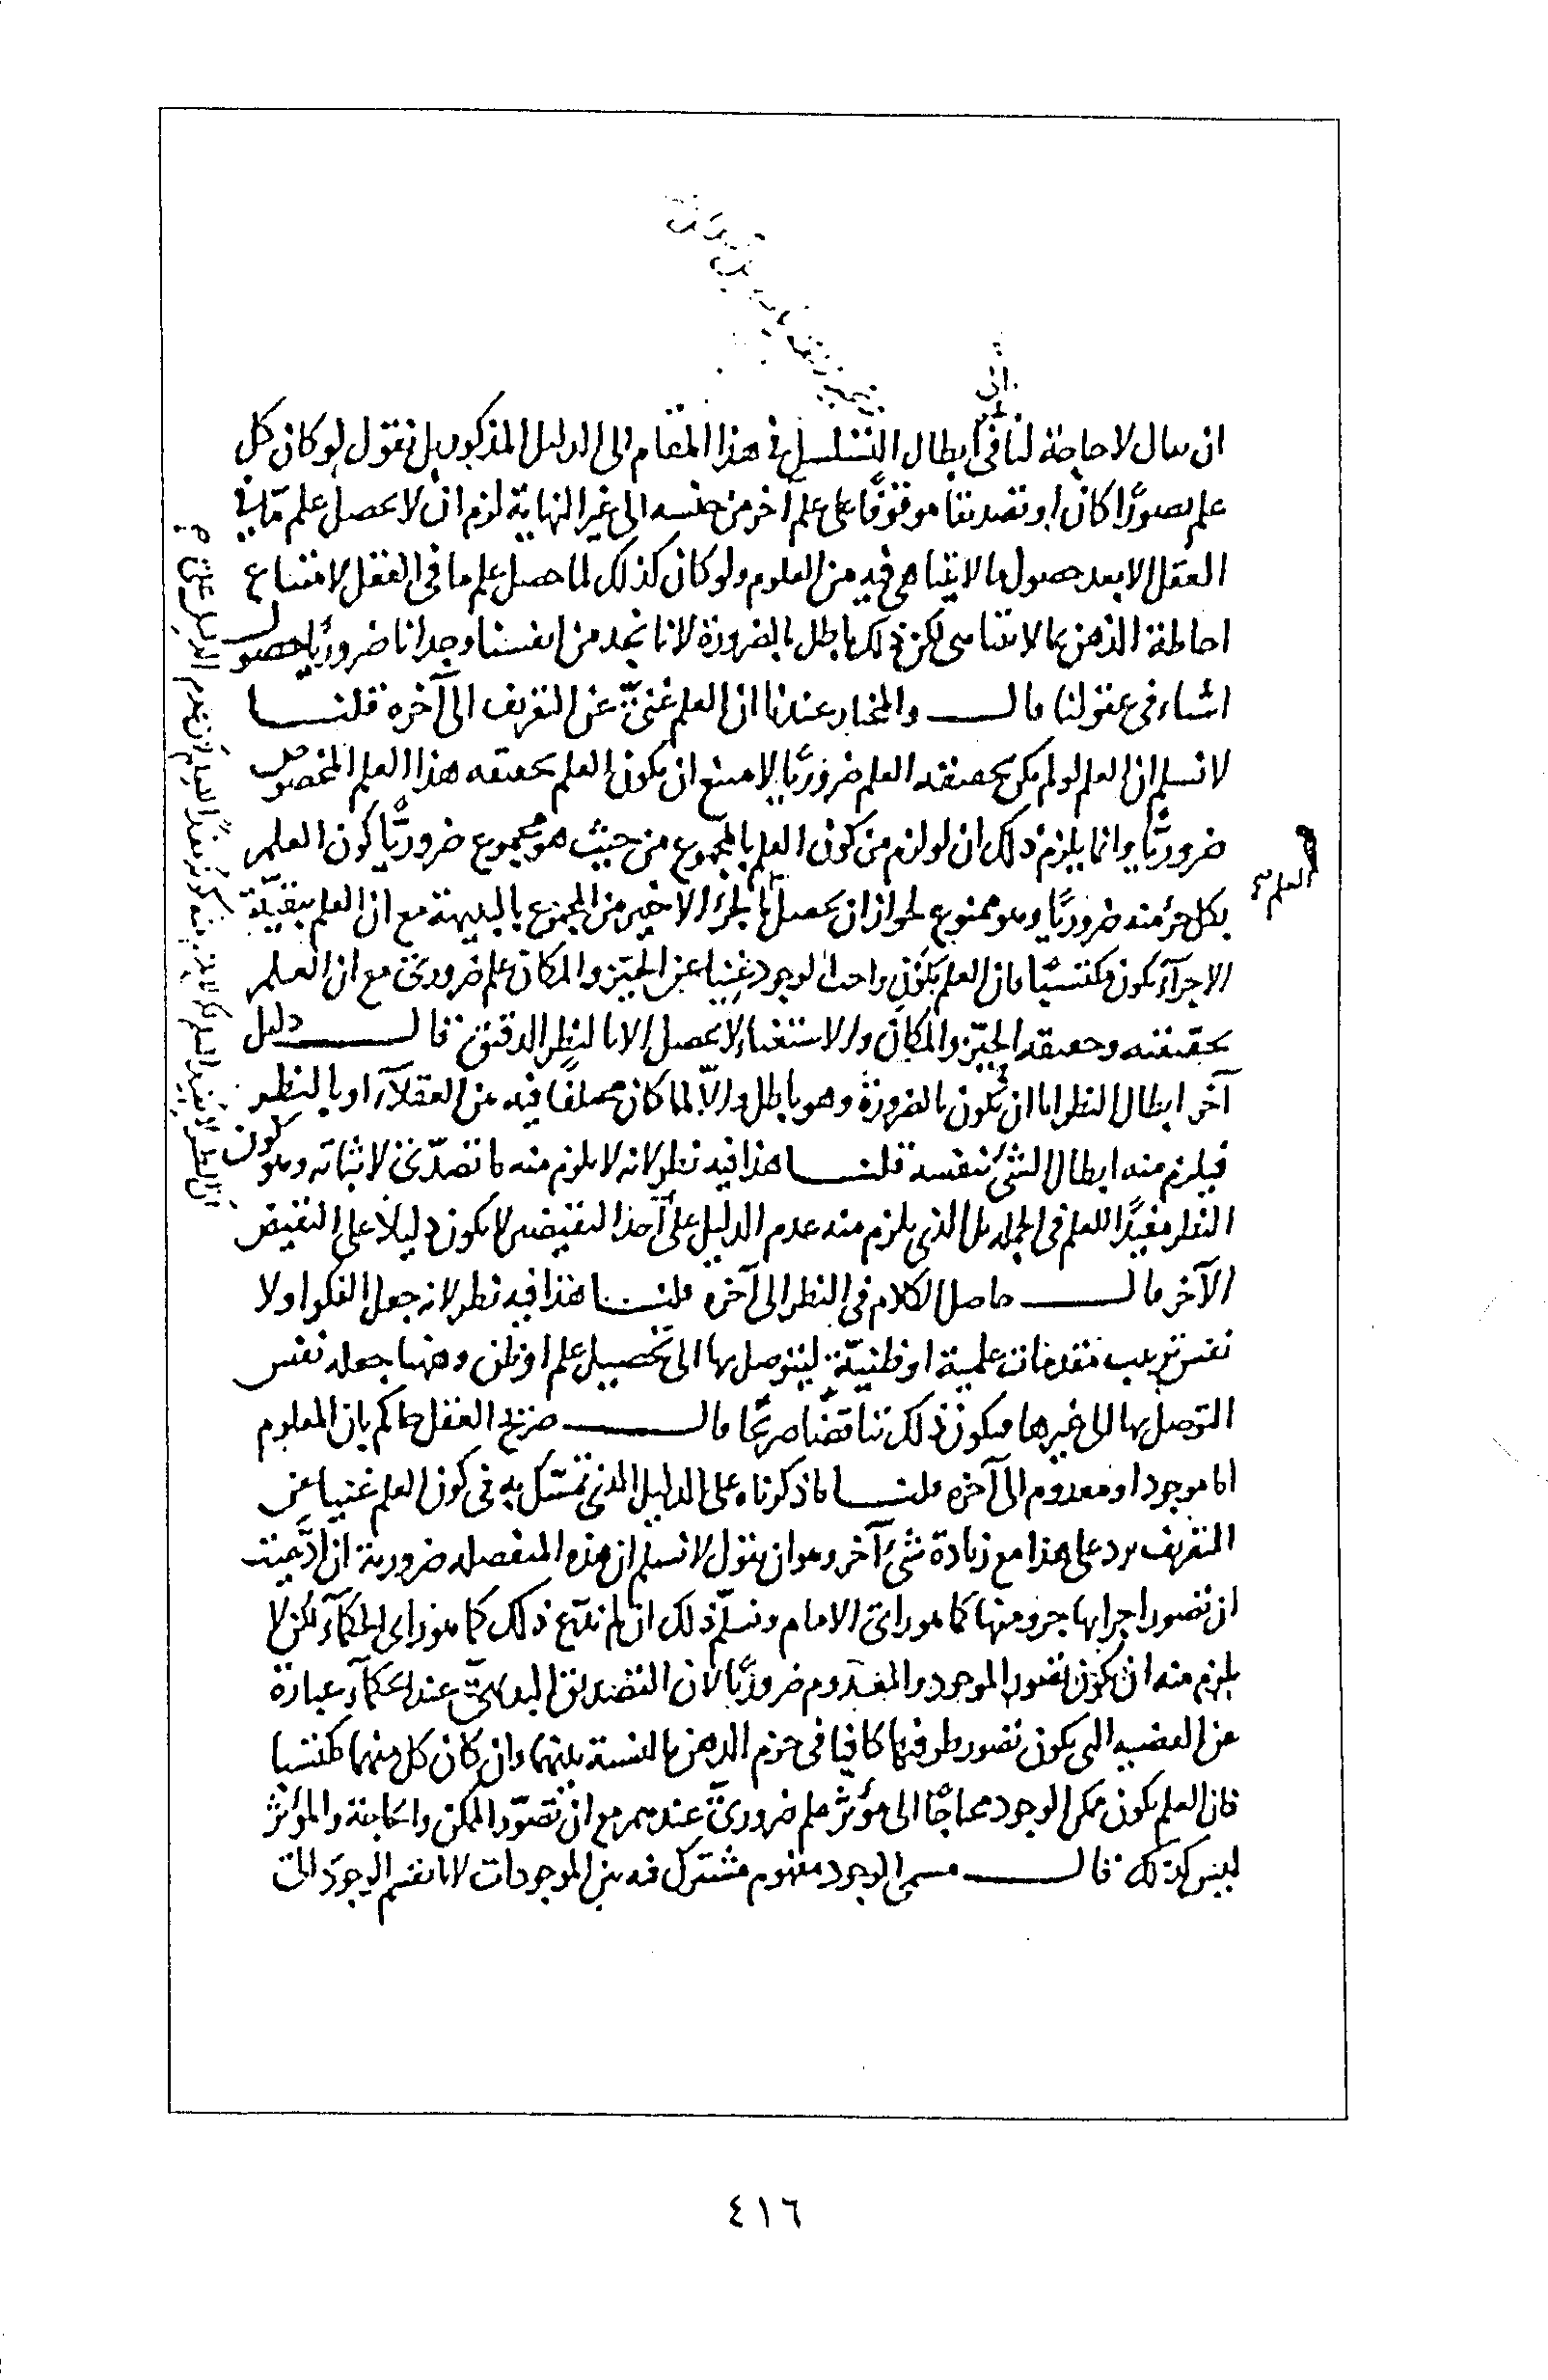 ان يقال لا حاجة لنا في ابطال التسلسل في هذا المقام الى الدليل المذكور بل نقول لو كان كل
علم تصورًا كان او تصديقا موقوفًا على علم آخر من جنسه الى غير النهاية لزم ان لا يحصل علم ما في
العقل الا بعد حصول ما لا يتناهى فيه من العلوم ولو كان كذلك لما حصل علم ما في العقل لامتناع
احاطة الذهن بما لا يتناهى لكن ذلك باطل بالضرورة لانا نجد من انفسنا وجدانا ضروريًا حصول
اشياء في عقولنا قال والمختار عندنا ان العلم غنيّ عن التعريف الى آخره قلنا
لا نسلم ان العلم لو لم يكن بحقيقته العلم ضروريًا لامتنع ان يكون العلم بحقيقه هذا العلم المخصوص
ضروريًّا وانما يلزم ذلك ان لو لزم من كون العلم بالمجموع من حيث هو مجموع ضروريًّا كون العلم
بكل جزء منه ضروريًا وهو ممنوع لجواز ان يحصل العلم بالجزء الاخير من المجموع بالبديهة مع ان العلم ببقيّة
الاجزآء يكون مكتسبًا فان العلم بكون واجب الوجود غنيا عن الحيّز والمكان علم ضروري مع ان العلم
بحقيقته وحقيقه الحيّز والمكان والاستغناء لا يحصل الا بالنظر الدقيق قال دليل
آخر ابطال النظر اما ان يكون بالضرورة وهو باطل والّا لما كان مختلفًا فيه بين العقلآء او بالنظر
فيلزم منه ابطال الشئ بنفسه قلنا هذا فيه نظر لانه لا يلزم منه ما تصدّى لاثباته وهو كون
النظر مفيدًا للعلم في الجمله بل الذي يلزم منه عدم الدليل على احد النقيضين لا يكون دليلًا على النقيض
الآخر قال حاصل الكلام في النظر الى آخره قلنا هذا فيه نظر لانه جعل الفكر اولا
نفس ترتيب مقدمات علمية او ظنيّة ليتوصل بها الى تحصيل علم او ظن وههنا جعله نفس
التوصل بها الى غيرها فيكون ذلك تناقضًا صريحًا قال صريح العقل حاكم بان المعلوم
اما موجود او معدوم الى آخره قلنا ما ذكرناه على الدليل الذي تمسّك به في كون العلم غنيا عن
التعريف يرد على هذا مع زيادة شئ آخر وهو ان يقول لا نسلم ان هذه المنفصله ضرورية ان ادّعيت
ان تصور اجزايها جزء منها كما هو راى الامام ونسلّم ذلك ان لم تدّع ذلك كما هو راى الحكمآء لكن لا
يلزم منه ان يكون تصور الموجود والمعدوم ضروريًا لان التصديق البديهيّ عند الحكمآء عبارة
عن القضيه التي يكون تصور طرفيها كافيا في جزم الذهن بالنسبة بينهما وان كان كل منهما مكتسبا
فان العلم بكون ممكن الوجود محتاجًا الى مؤثر علم ضروريّ عندهم مع ان تصوّر الممكن والحاجة والمؤثر
ليس كذلك قال مسمى الوجود مفهوم مشترك فيه بين الموجودات لانا نقسم الوجود الى
العلم
٤١٦